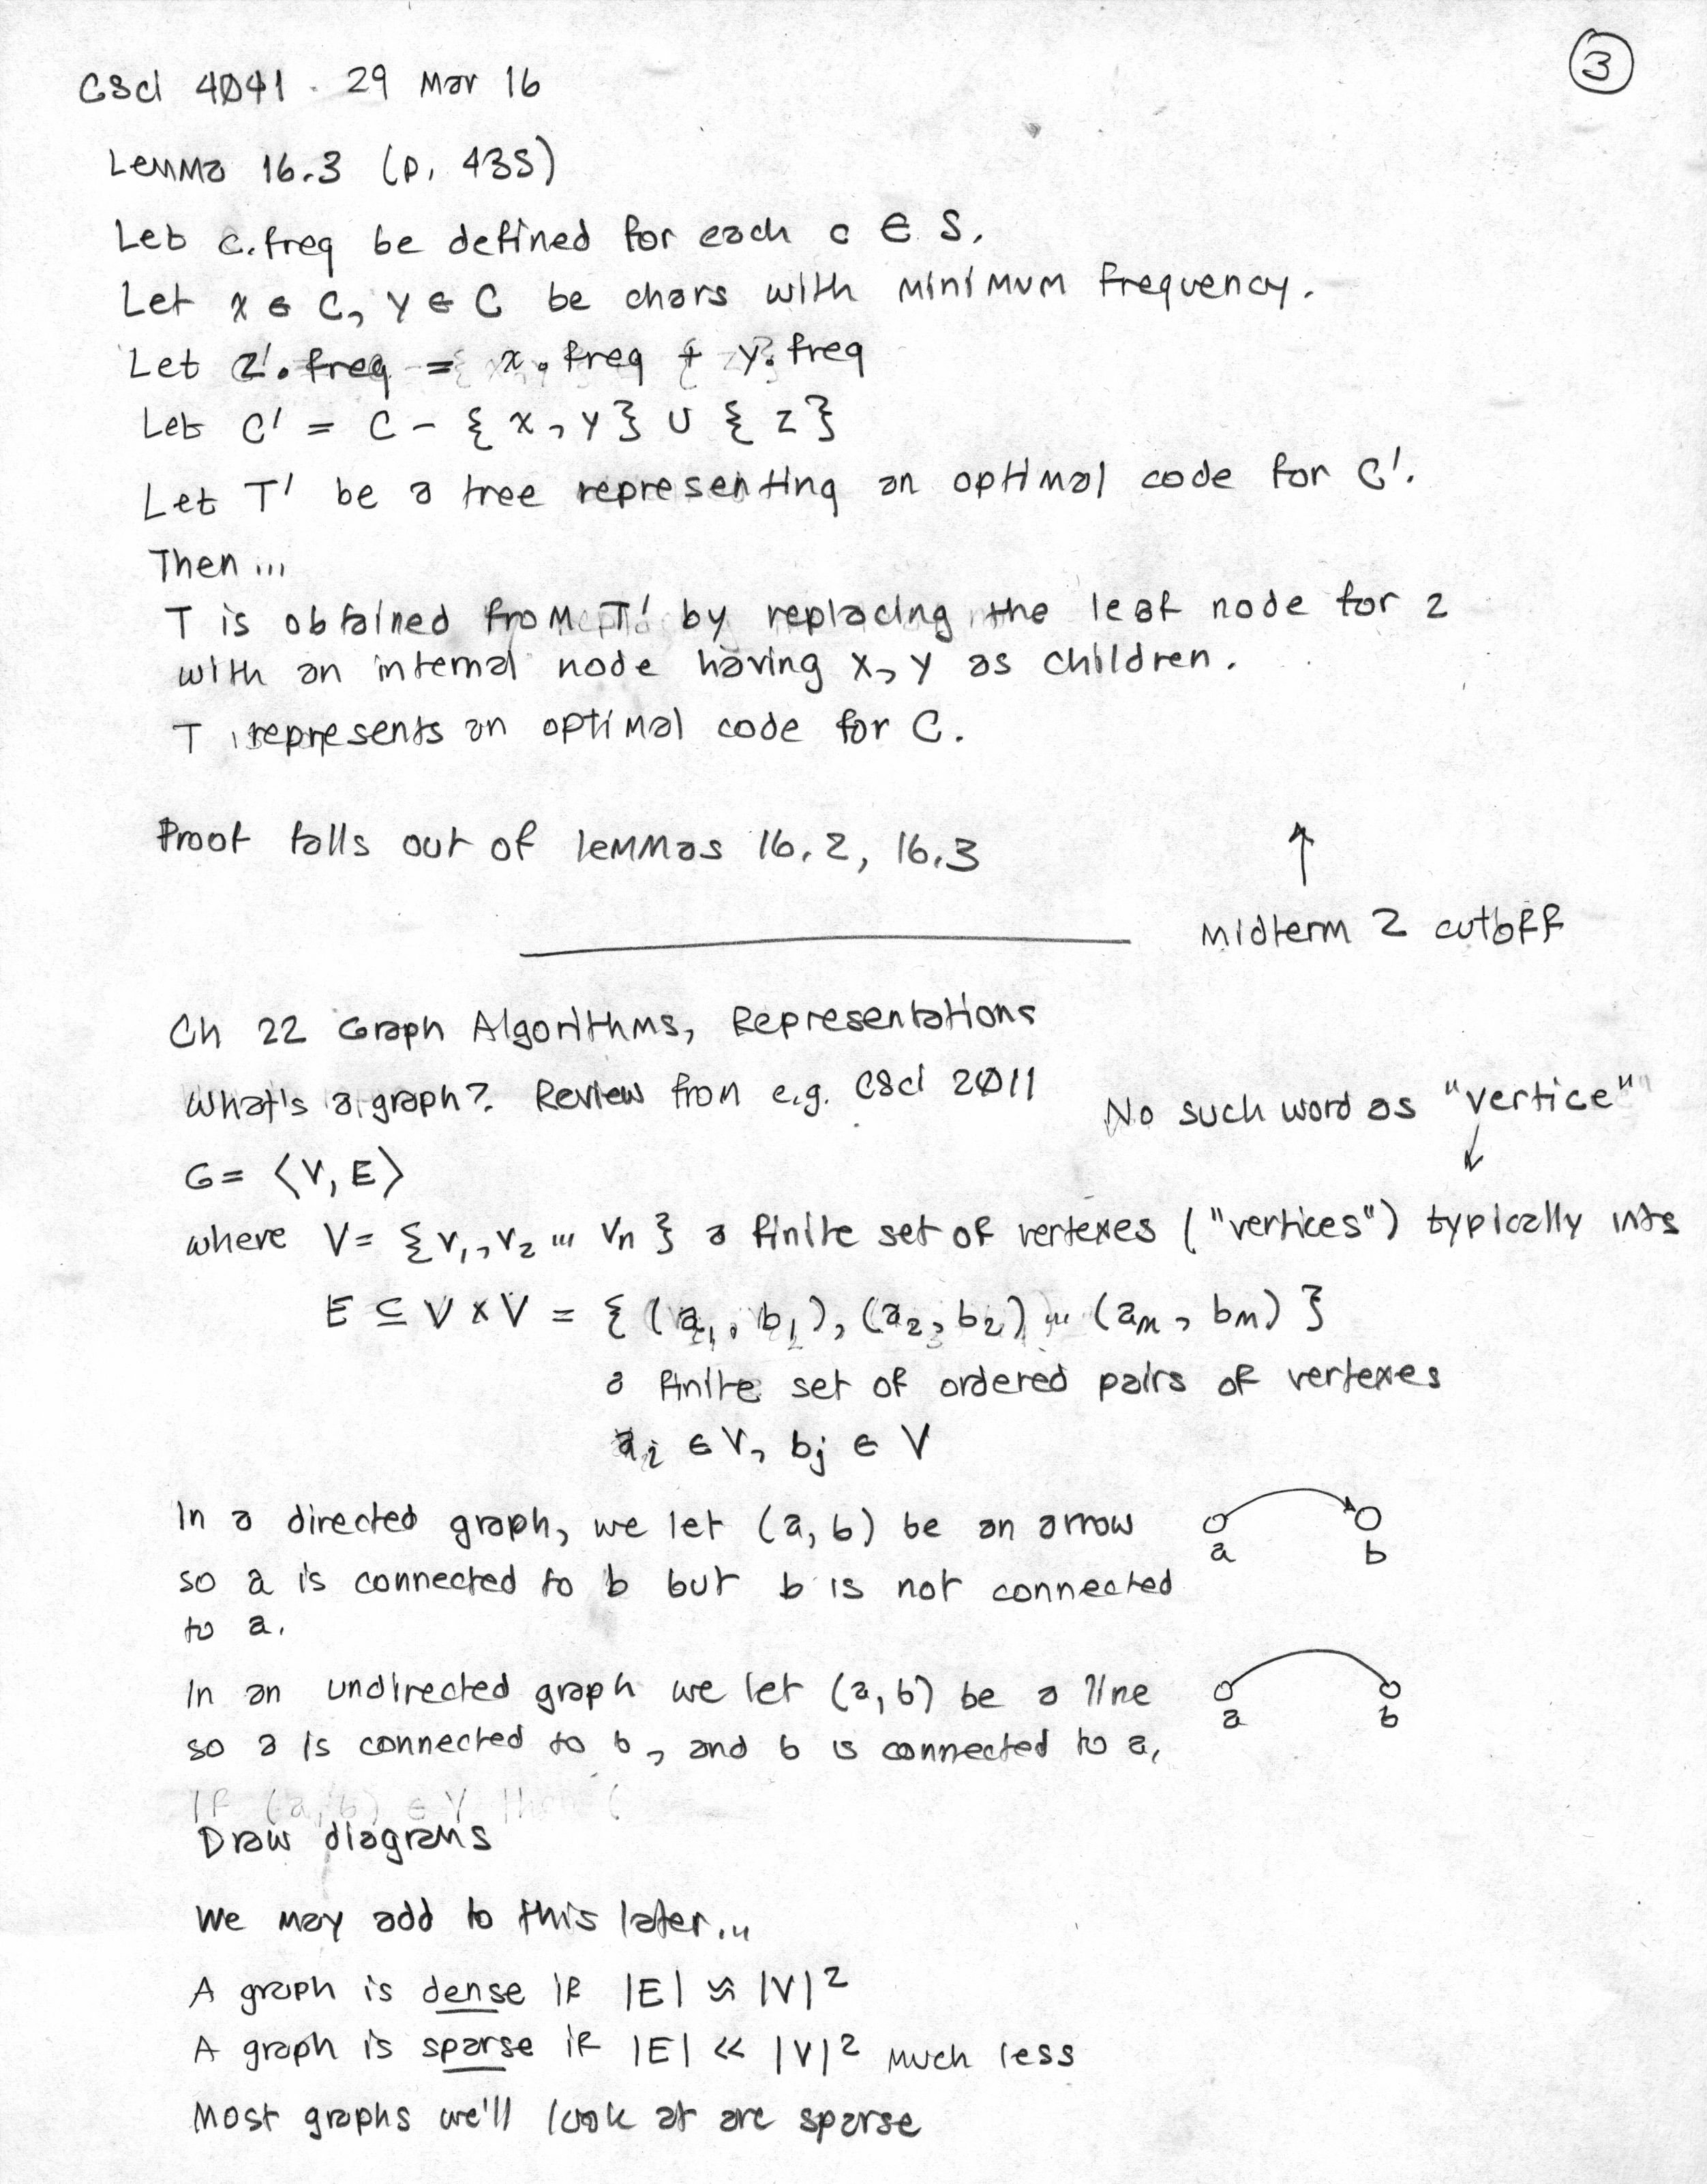 ③
CSci 4041. 29 Mar 16
Lemma 16.3 (p. 435)
Let c.freq be defined for each c ∈ S.
Let x ∈ C, y ∈ C be chars with minimum frequency.
Let z.freq = x.freq + y.freq
Let C' = C - {x, y} ∪ {z}
Let T' be a tree representing an optimal code for C'.
Then ...
T is obtained from T' by replacing the leaf node for z
with an internal node having x, y as children.
T represents an optimal code for C.
Proof falls out of lemmas 16.2, 16.3
↑
Midterm 2 cutoff
Ch 22 Graph Algorithms, Representations
What's a graph? Review from e.g. CSci 2011
No such word as "vertice"
↓
G = ⟨V, E⟩
where V = {v₁, v₂ ... vₙ} a finite set of vertexes ("vertices") typically ints
E ⊆ V x V = {(a₁, b₁), (a₂, b₂) ... (aₘ, bₘ)}
a finite set of ordered pairs of vertexes
aᵢ ∈ V, bⱼ ∈ V
In a directed graph, we let (a, b) be an arrow
so a is connected to b but b is not connected
to a.
a b
In an undirected graph we let (a, b) be a line
so a is connected to b, and b is connected to a.
a b
If (a, b) ∈ V then (
Draw diagrams
We may add to this later...
A graph is dense if |E| ≈ |V|²
A graph is sparse if |E| << |V|² much less
Most graphs we'll look at are sparse